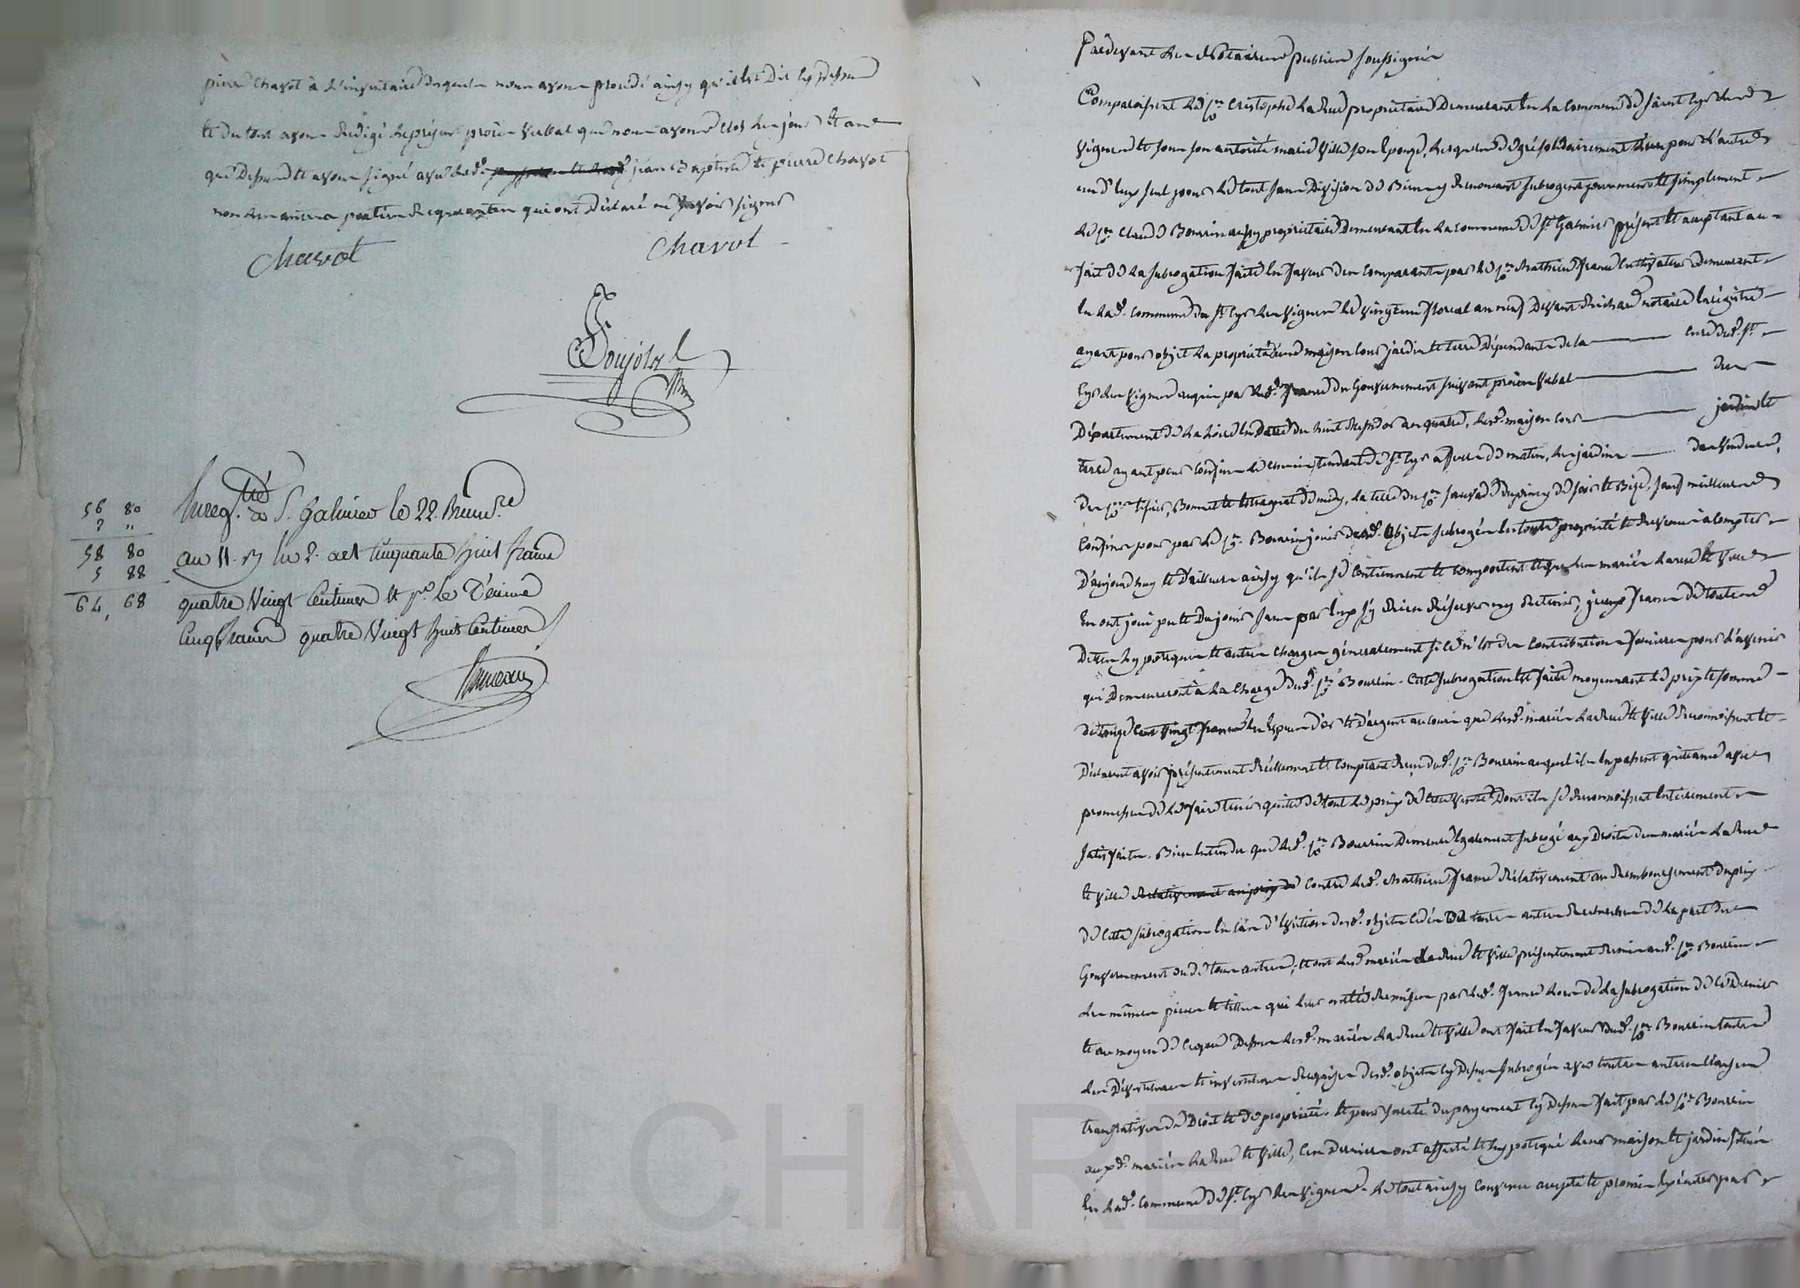 pierre chavot à l'inventaire duquel nous avons procédé ainsy qu'il est dit cy dessus
et du tout avons redigé le présent procès verbal que nous avons clos les jour et an
que dessus et avons signé avec lesd. jean Baptiste et pierre chavot
non les autres parties requerantes qui ont déclaré ne savoir signer
Chavot chavot
Poujolat
56 80
2 "
58 80
5 88
64, 68
Enreg.tré à S. Galmier le 22. Brum.re
an 11. cinquante huit francs
quatre Vingt Centimes et p.r le Dixime
Cinq francs quatre Vingt huit Centimes
Pardevant les Notaires publics soussignés
Comparaissent le S.r Cristophe Larue propriétaire demeurant en la commune de saint Cyr les
vignes et sous son autorité marie Ville son épouse, lesquels de gré solidairement l'un pour l'autre
un d'eux seul pour le tout sans division de biens y renonçant subrogent purement et simplement
le S.r Claude Bourrin aussy propriétaire demeurant en la commune de S.t Galmier présent et acceptant au
fait de la subrogation faite en faveur des comparants par le S.r Mathieu france cultivateur demeurant
en lad. commune de S.t Cyr les vignes le vingt un floreal an neuf devant Richard notaire enregistré
ayant pour objet la propriété d'une maison cour jardin et terre dépendants de la cure dud. S.t
Cyr les vignes acquis par led. france du Gouvernement suivant procès verbal du
Département de la Loire en date du huit messidor an quatre, lesd. maison cour jardin et
terre ayant pour confins le chemin tendant de S.t Cyr à de matin, le jardin
de midy, la terre du S.r de soir et Bize, sauf meilleurs
Confins pour par le S.r Bourrin jouir desd. objets subrogés en toute propriété et revenus à compter
d'aujourdhuy et d'ailleurs ainsy qu'ils se contiennent et comportent et que les mariés Larue et Ville
en ont joui pu et du jouir sans par eux s'y rien réserver ny retenir, jceux francs de toutes
dettes hypoteques et autres charges généralement si ce n'est des contributions foncieres pour l'avenir
qui demeureront à la charge dud. S.r Bourrin. Cette subrogation est faite moyennant le prix et somme
de cent vingt francs en especes d'or et d'argent au cours que lesd. mariés Larue et Ville reconnoissent et
déclarent avoir présentement réellement et comptant reçu dud. S.r Bourrin auquel ils en passent quittance avec
promesse de le faire tenir quitte de tout le prix de cette vente dont ils se reconnoissent entierement
satisfaits. Bien entendu que led. S.r Bourrin demeure également subrogé aux droits des mariés Larue
et Ville relativement au prix de contre led. Mathieu france rélativement au remboursement du prix
de cette subrogation en cas d'éviction desd. objets cédés et toute autre recherche de la part du
Gouvernement ou de tous autres; et ont lesd. mariés Larue et Ville présentement remis aud. S.r Bourrin
les mêmes pieces et titres qui leur ont été remises par led. france lors de la subrogation de ce dernier
et au moyen de ce que dessus lesd. mariés Larue et Ville ont fait en faveur dud. S.r Bourrin toutes
les dévestitures et investitures requises desd. objets cy dessus subrogés avec toutes autres clauses
translatives de droit et de propriété. et pour sureté du payement cy dessus fait par led. S.r Bourrin
auxd. mariés Larue et Ville, ces derniers ont affecté et hypotequé leurs maison et jardin situés
en lad. commune de S.t Cyr les vignes. le tout ainsy convenu accepté et promis exécuter par
scal CHARE